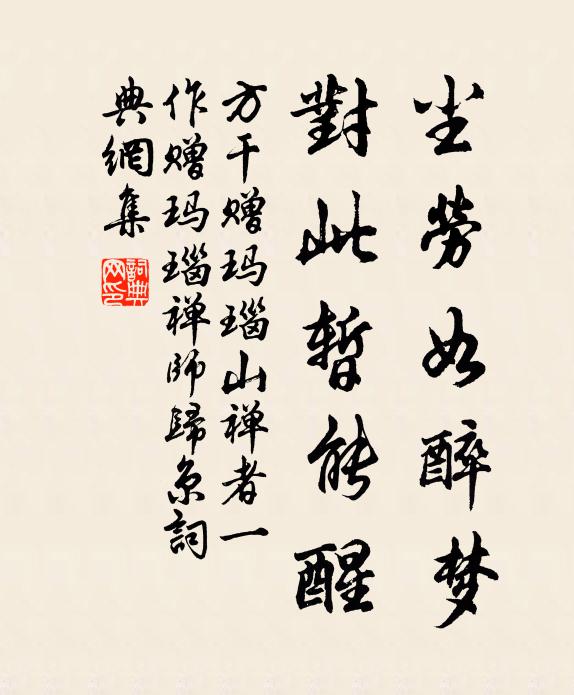 尘劳如醉梦
對此暂能醒
方干赠玛瑙山禅者一
作赠玛瑙禅师歸京詞
典網集
詞典网印